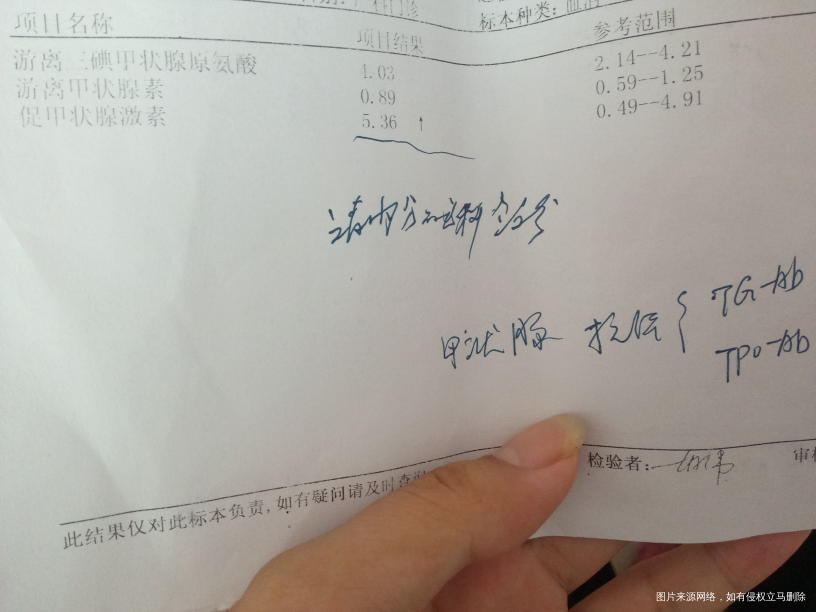 产科门诊
标本种类：血清
项目名称 项目结果 参考范围
游离三碘甲状腺原氨酸 4.03 2.14--4.21
游离甲状腺素 0.89 0.59--1.25
促甲状腺激素 5.36 ↑ 0.49--4.91
请内分泌科会诊
甲状腺 抗体 { TG-Ab
TPO-Ab
检验者：
审核
此结果仅对此标本负责，如有疑问请及时查询
图片来源网络，如有侵权立马删除